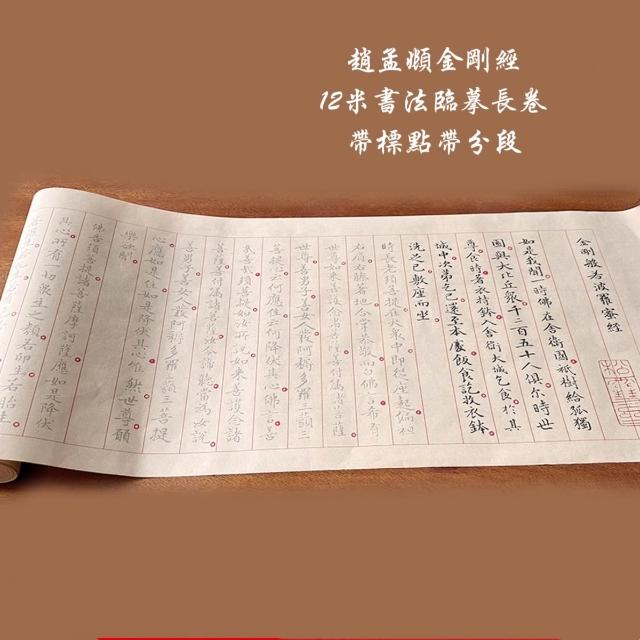 趙孟頫金剛經
12米書法臨摹長卷
帶標點帶分段
金剛般若波羅蜜經
如是我聞一時佛在舍衛國祇樹給孤獨
園與大比丘衆千二百五十人俱尔時世
尊食時著衣持鉢入舍衛大城乞食於其
城中次第乞已還至本處飯食訖收衣鉢
洗足已敷座而坐
時長老須菩提在大衆中即從座起偏袒
右肩右膝著地合掌恭敬而白佛言希有
世尊如來善護念諸菩薩善付囑諸菩薩
世尊善男子善女人發阿耨多羅三藐三
菩提心云何應住云何降伏其心佛言善
哉善哉須菩提如汝所說如來善護念諸
菩薩善付囑諸菩薩汝今諦聽當爲汝說
善男子善女人發阿耨多羅三藐三菩提
心應如是住如是降伏其心唯然世尊願
樂欲聞
佛告須菩提諸菩薩摩訶薩應如是降伏
其心所有一切衆生之類若卵生若胎生